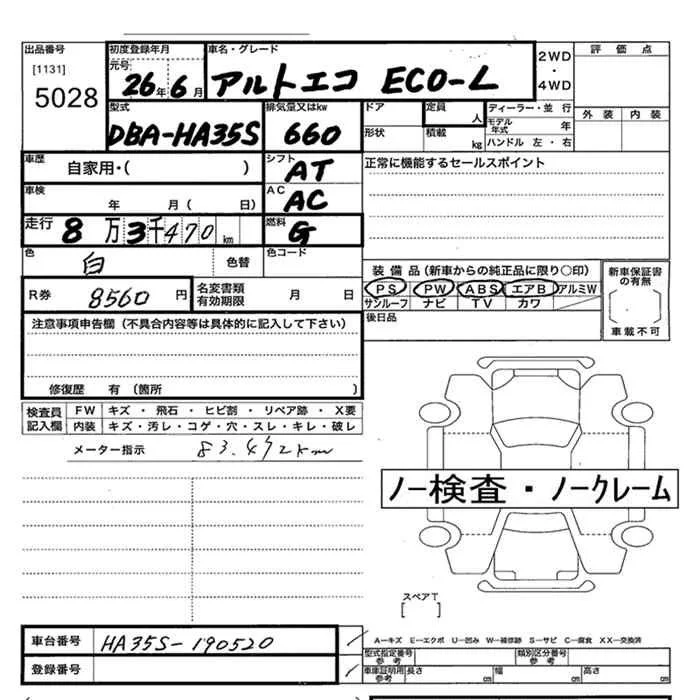 出品番号 初度登録年月 車名・グレード 2WD・4WD 評価点
[1131] 元号
5028 26年6月 アルトエコ ECO-L
外装 内装
型式 排気量又はkw ドア 定員 人 ディーラー・並行
DBA-HA35S 660 形状 積載 kg モデル年式 年
ハンドル 左・右
車歴 自家用・( ) シフト AT 正常に機能するセールスポイント
車検 年 月( 日) AC AC
走行 8万3千470km 燃料 G
色 白 色替 色コード
装備品(新車からの純正品に限り○印) 新車保証書の有無
PS PW ABS エアB アルミW
サンルーフ ナビ TV カワ
[ ]
車載不可
R券 8560円 名変書類有効期限 月 日 後日品
注意事項申告欄(不具合内容等は具体的に記入して下さい)
修復歴 有(箇所 )
検査員記入欄 FW キズ・飛石・ヒビ割・リペア跡・X要
内装 キズ・汚レ・コゲ・穴・スレ・キレ・破レ
メーター指示 83.472km
ノー検査・ノークレーム
スペアT
[ ]
車台番号 HA35S-190520
登録番号
A=キズ E=エクボ U=凹み W=補修跡 S=サビ C=腐食 XX=交換済
型式指定番号参考 類別区分番号参考
車庫証明用参考 長さ cm 幅 cm 高さ cm